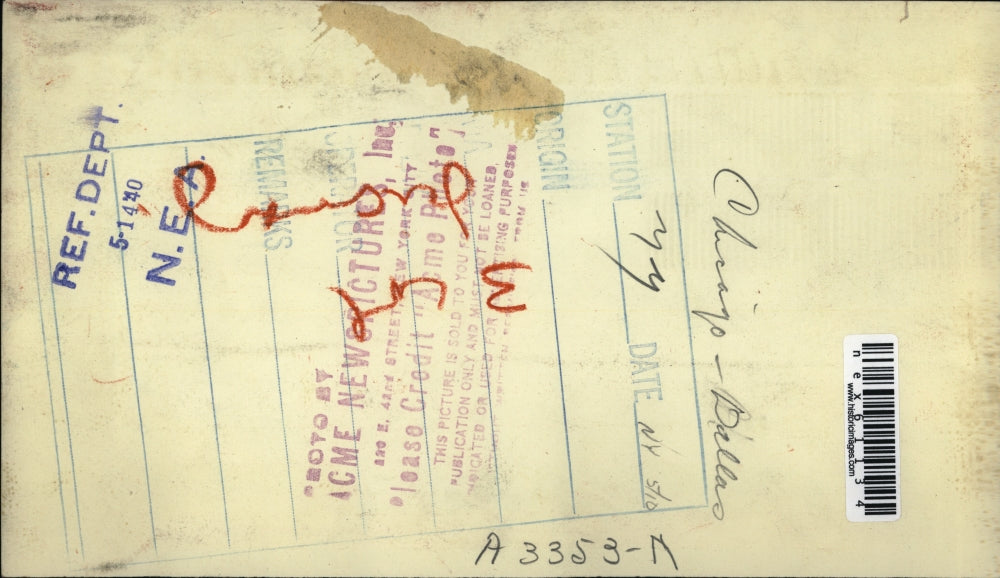 REF. DEPT.
5-14-40
N. E. A.
REMARKS
ORIGIN
STATION NY DATE NY 5/10
PHOTO BY
ACME NEWSPICTURES, Inc.
220 E. 42nd STREET, NEW YORK CITY
Please Credit "Acme Photo"
THIS PICTURE IS SOLD TO YOU FOR YOUR
PUBLICATION ONLY AND MUST NOT BE LOANED,
INDICATED OR USED FOR ADVERTISING PURPOSES
FROM US
M
Chicago - Dallas
A 3353-A
nex611134
www.historicimages.com